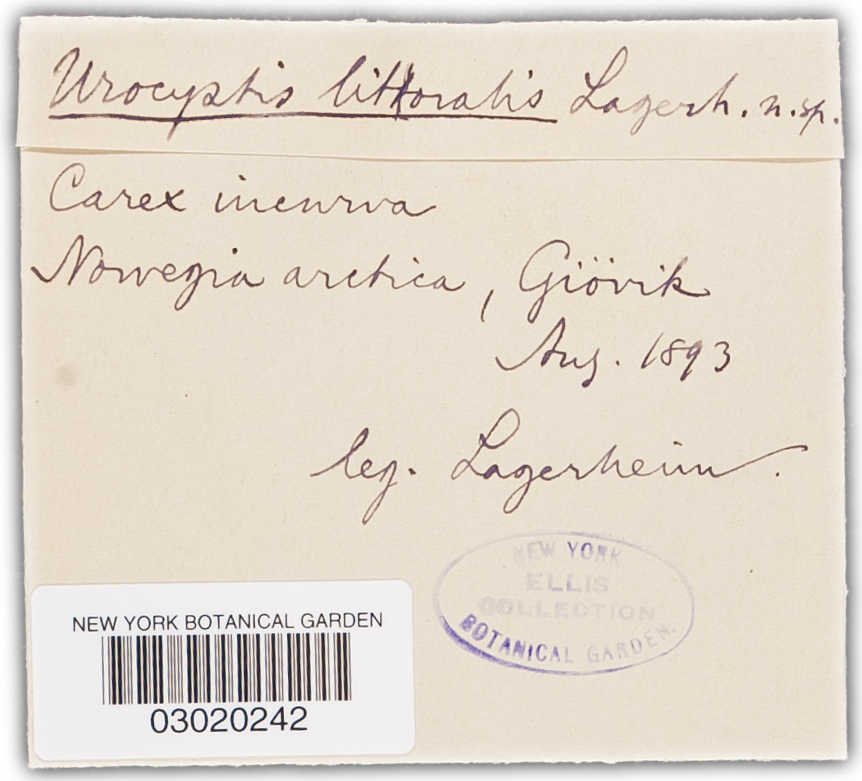 Urocystis littoralis Lagerh. n. sp.
Carex incurva
Norvegia arctica, Giövik
Aug. 1893
leg. Lagerheim.
NEW YORK
ELLIS
COLLECTION
BOTANICAL GARDEN.
NEW YORK BOTANICAL GARDEN
03020242